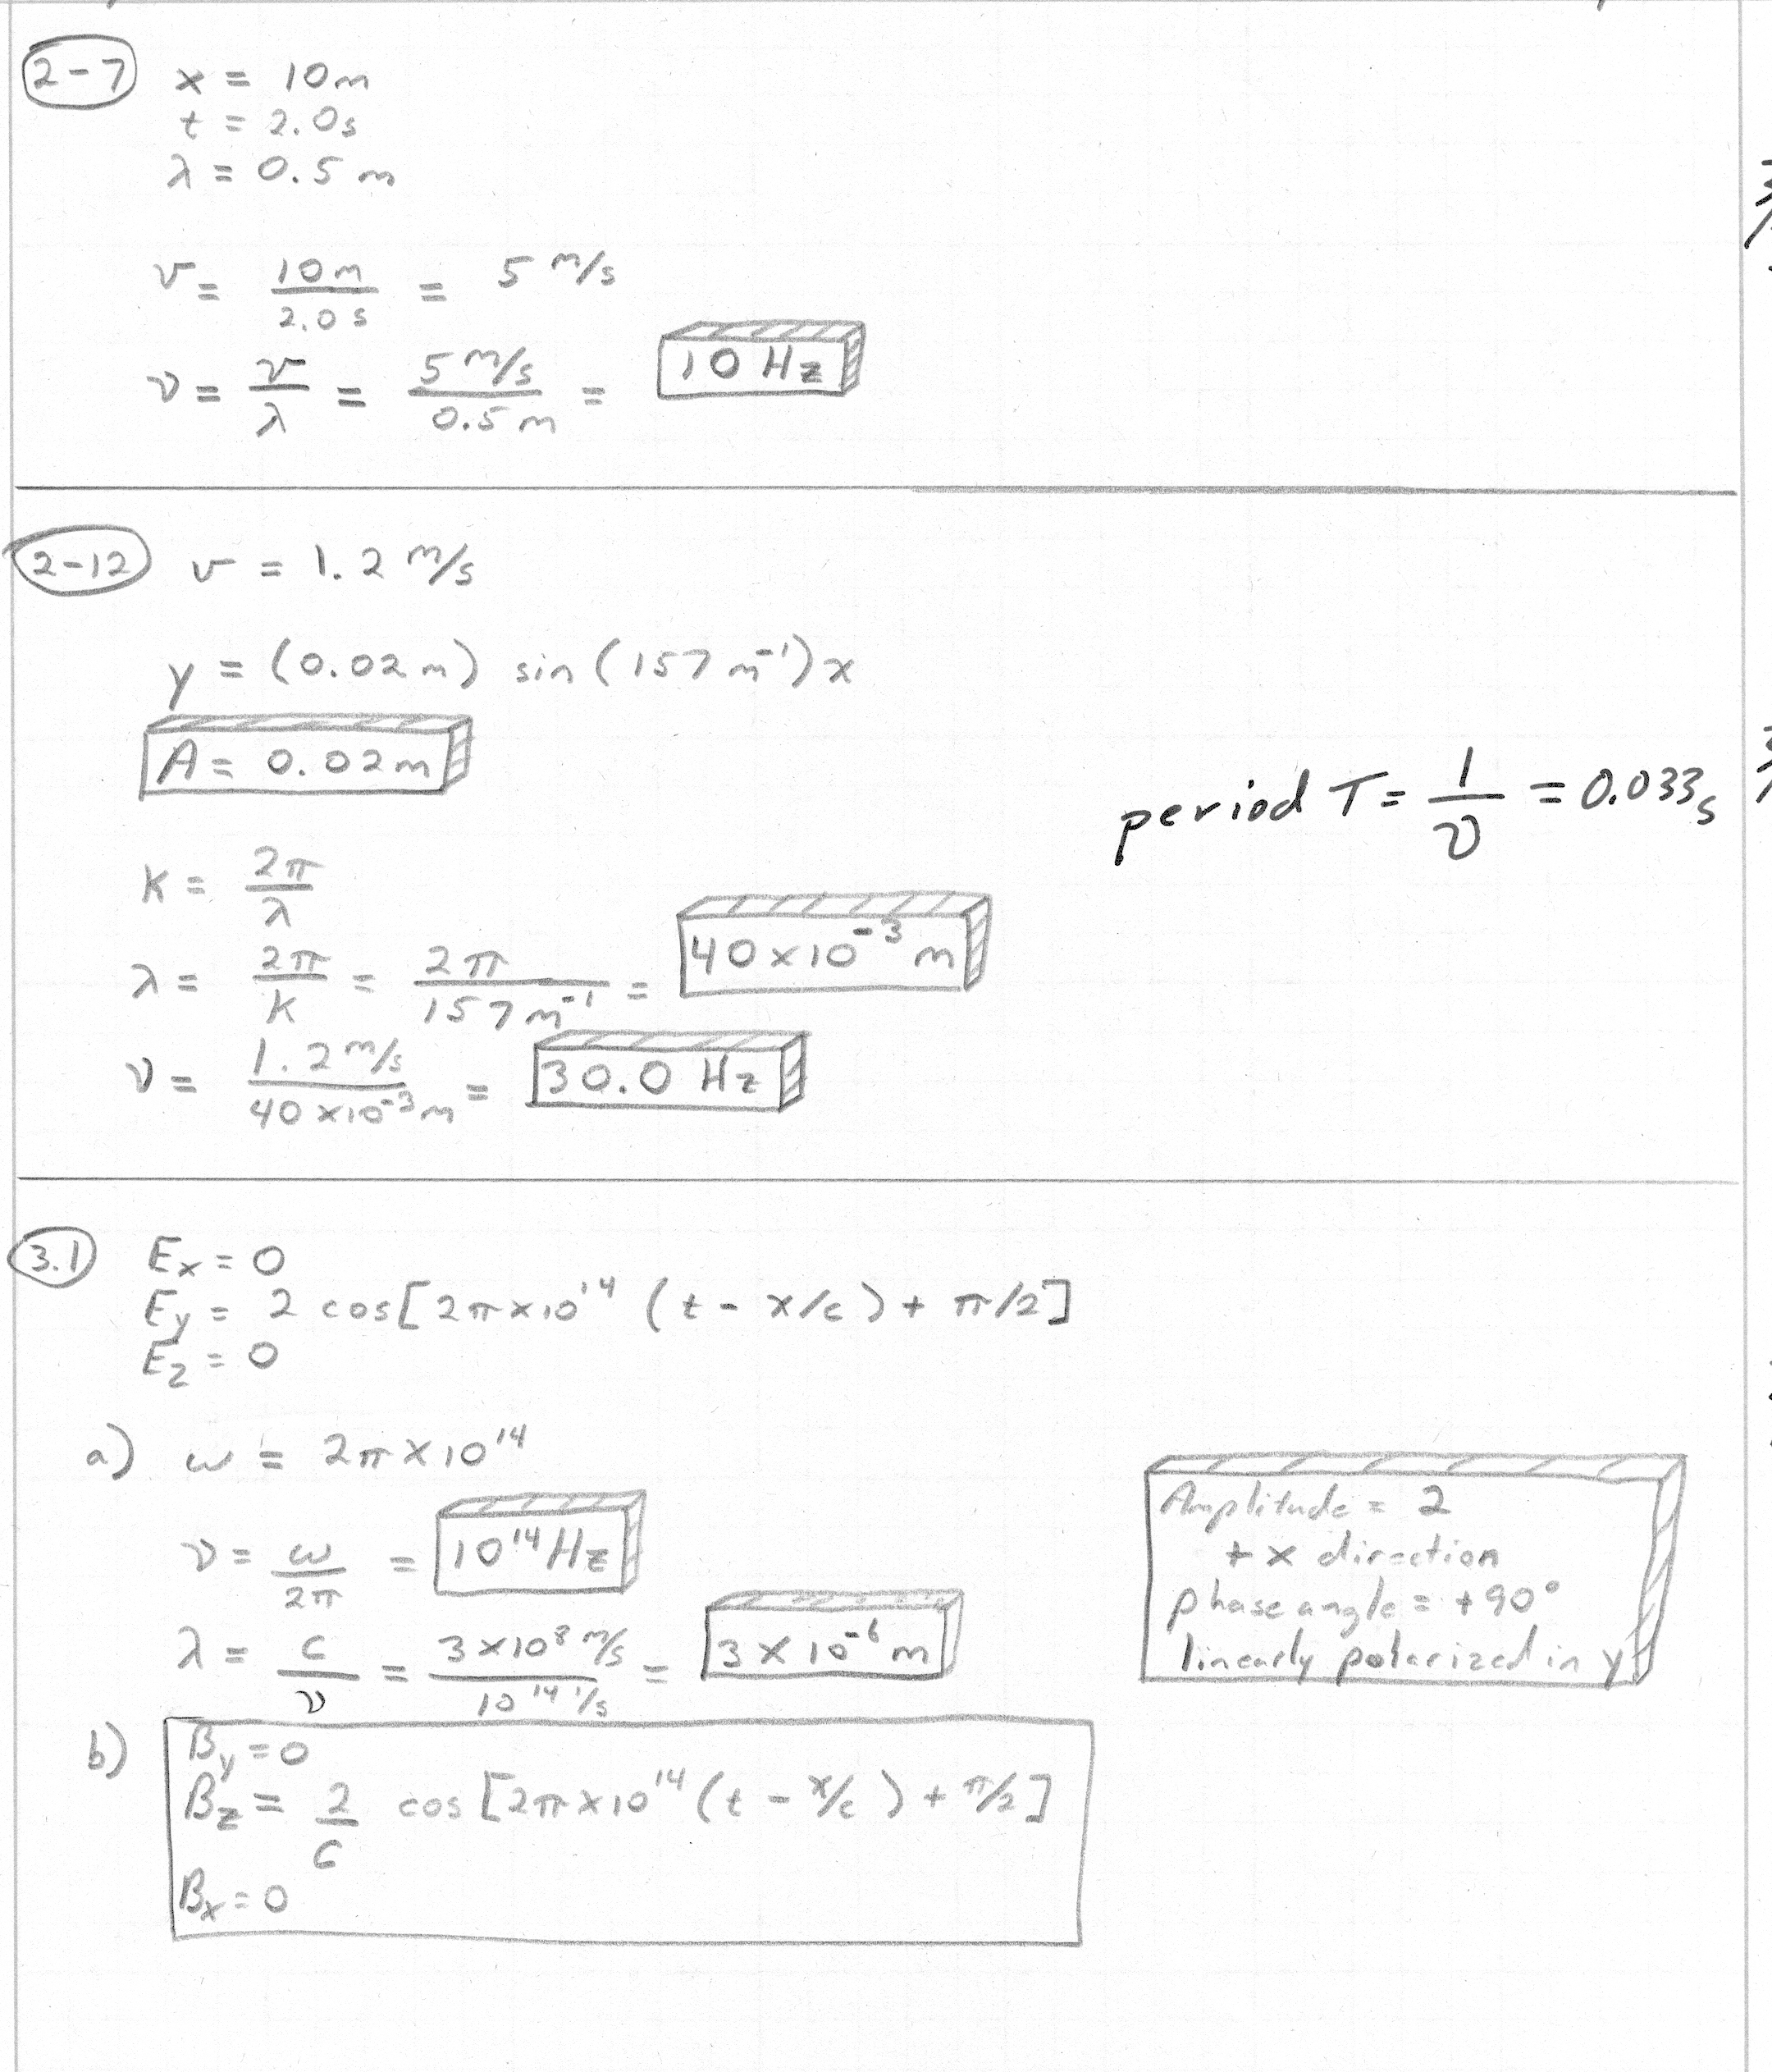 2-7 x = 10m
t = 2.0s
λ = 0.5 m
v = 10m/2.0s = 5 m/s
ν = v/λ = 5 m/s / 0.5m = 10 Hz
2-12 v = 1.2 m/s
y = (0.02m) sin(157 m⁻¹)x
A = 0.02m
period T = 1/ν = 0.033s
k = 2π/λ
λ = 2π/k = 2π/157 m⁻¹ = 40×10⁻³ m
ν = 1.2 m/s / 40×10⁻³m = 30.0 Hz
3.1 Ex = 0
Ey = 2 cos[2π×10¹⁴ (t - x/c) + π/2]
Ez = 0
a) ω = 2π×10¹⁴
ν = ω/2π = 10¹⁴ Hz
λ = c/ν = 3×10⁸ m/s / 10¹⁴ 1/s = 3×10⁻⁶ m
Amplitude = 2
+x direction
phase angle = +90°
linearly polarized in y
b) By = 0
Bz = 2/c cos[2π×10¹⁴(t - x/c) + π/2]
Bx = 0